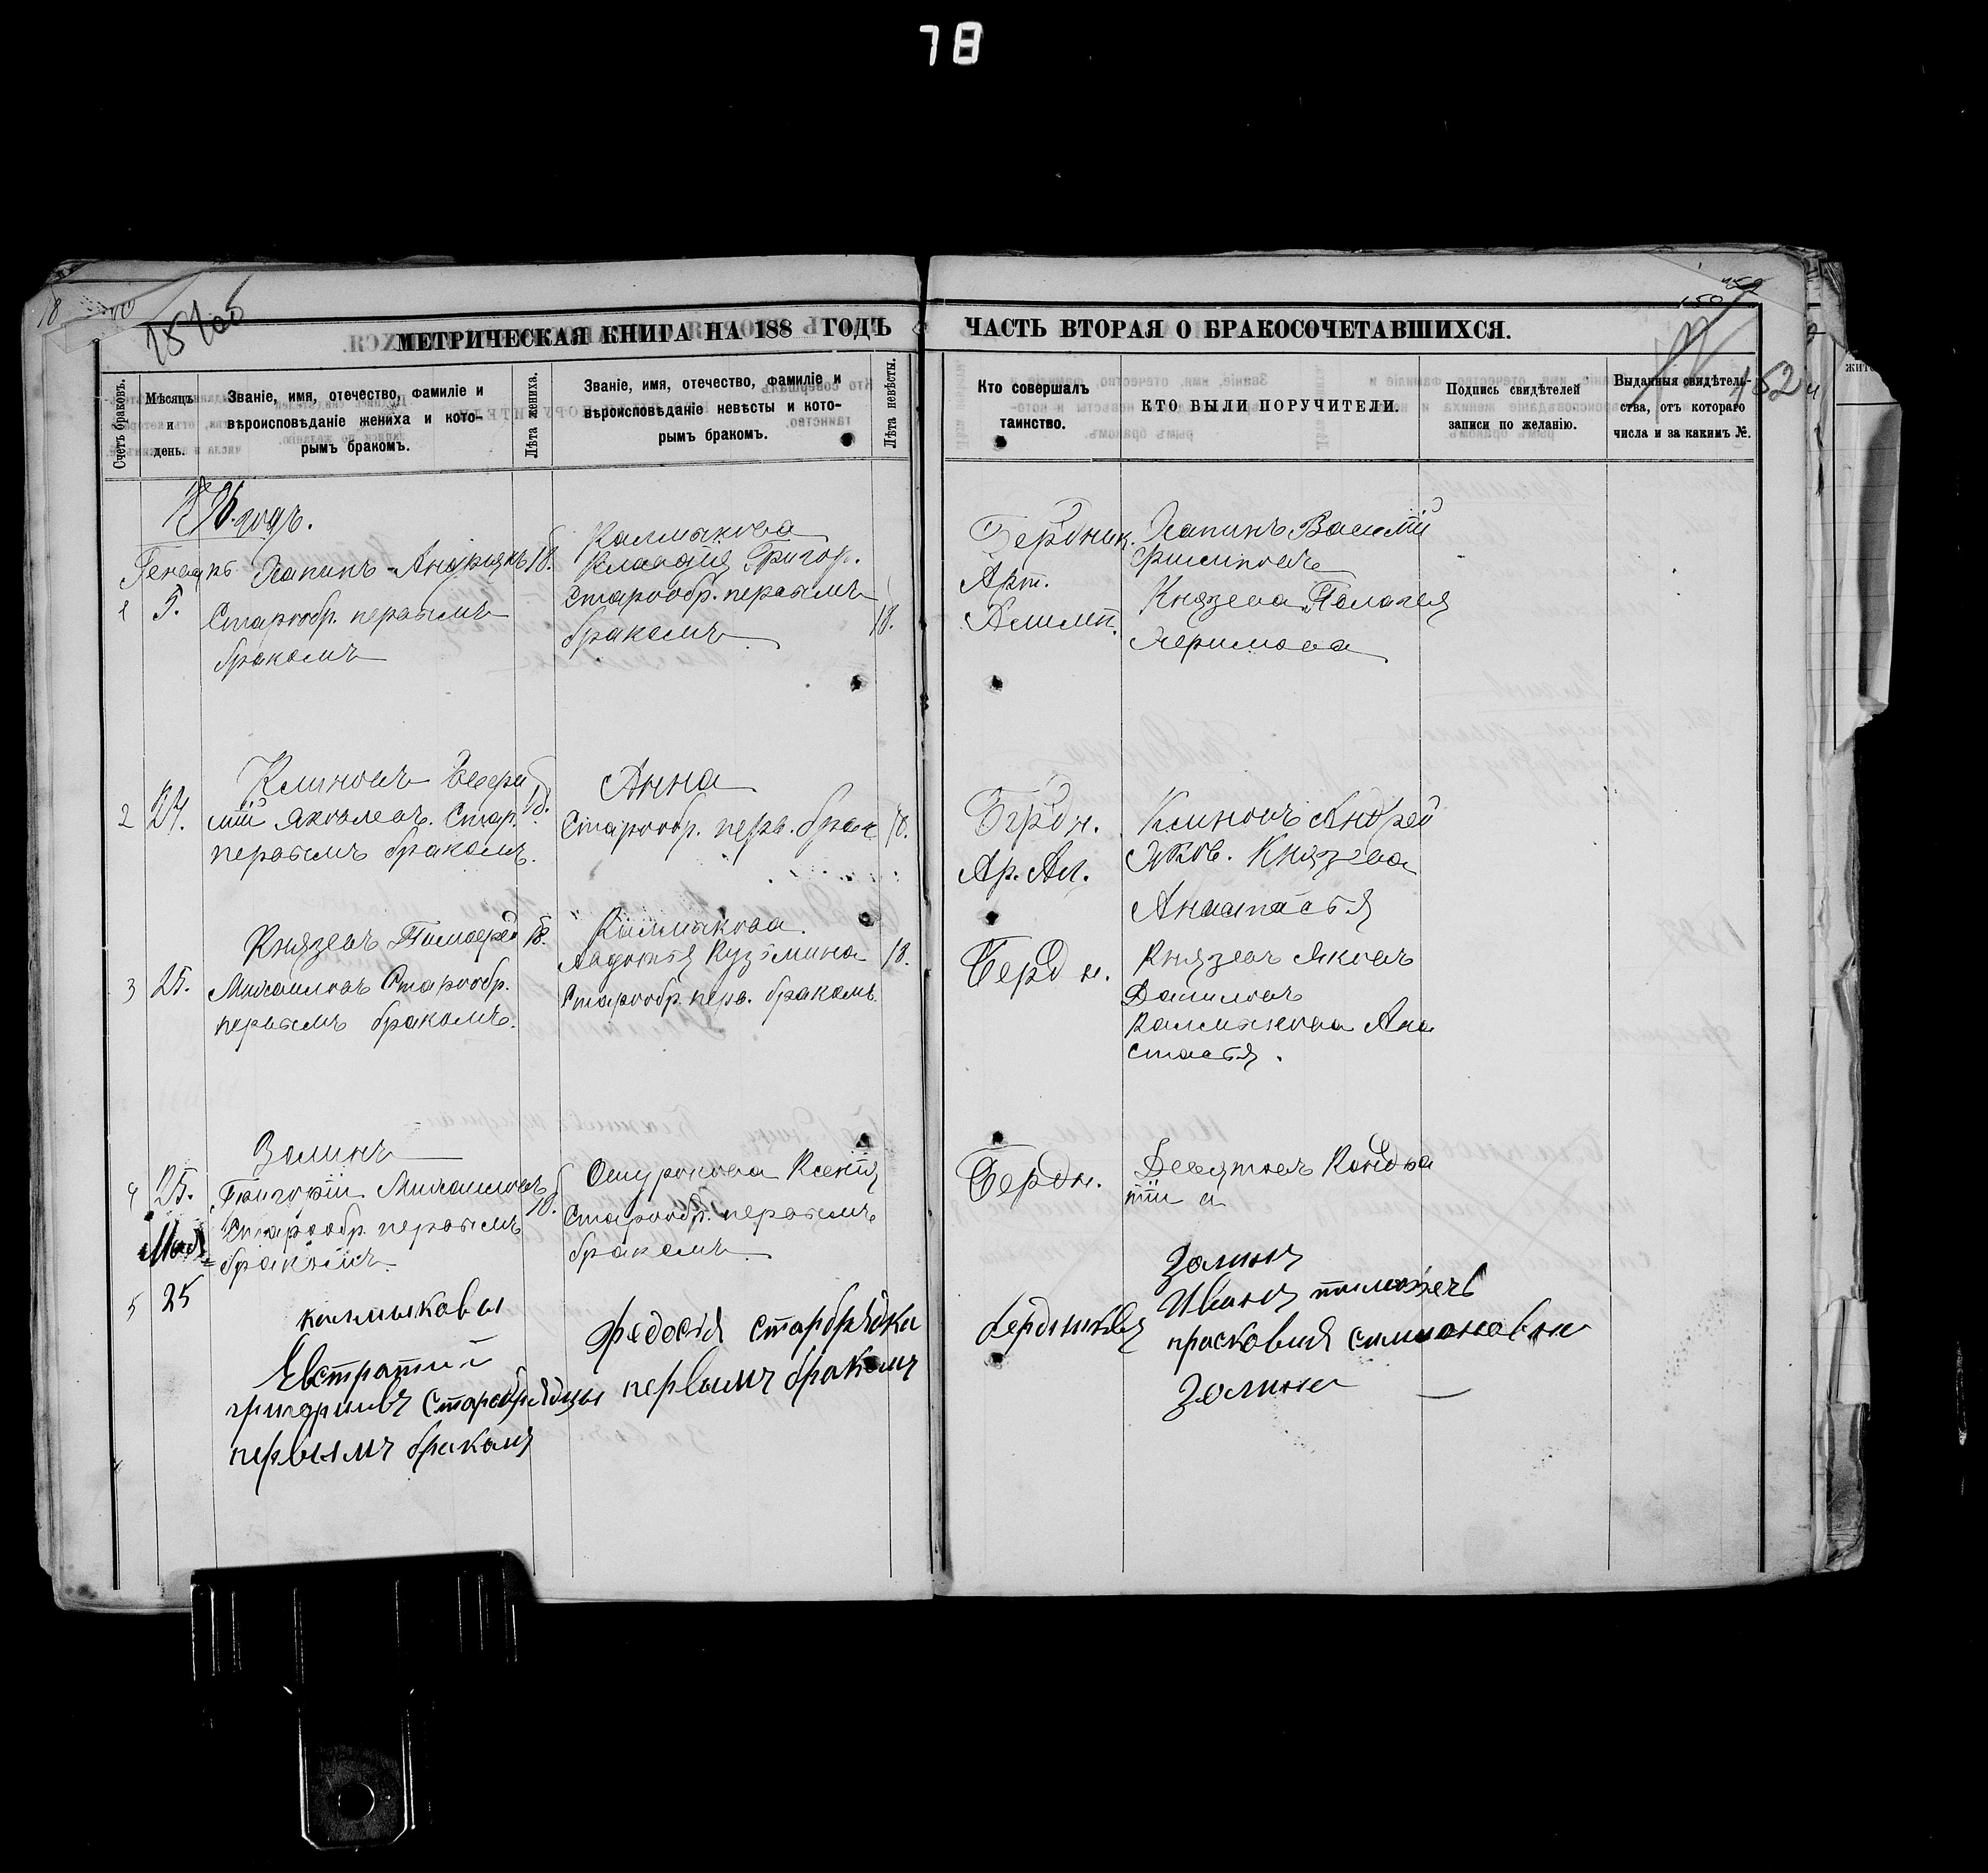 78
МЕТРИЧЕСКАЯ КНИГА НА 188 ГОДЪ
ЧАСТЬ ВТОРАЯ О БРАКОСОЧЕТАВШИХСЯ.
152
Счетъ браковъ.
Мѣсяцъ и день.
Званіе, имя, отечество, фамиліе и
вѣроисповѣданіе жениха и кото-
рымъ бракомъ.
Лѣта жениха.
Званіе, имя, отечество, фамиліе и
вѣроисповѣданіе невѣсты и кото-
рымъ бракомъ.
Лѣта невѣсты.
Кто совершалъ
таинство.
КТО БЫЛИ ПОРУЧИТЕЛИ.
Подпись свидѣтелей
записи по желанію.
Выданныя свидѣтель-
ства, отъ котораго
числа и за какимъ №.
годъ.
1
5.
Андриянъ 18.
Старообр. первымъ
бракомъ
Калмыкова
Клавдия Григор.
Старообр. первымъ
бракомъ
18.
Бердник.
Арт.
Василій
Филиповъ
Князева Палагея
2
24.
Климовъ
Яковлевъ. Стар.
первымъ бракомъ.
18.
Анна
Старообр. перв. брак
18.
Бердн.
Ар. Ал.
Климовъ Андрей
Яков. Князева
Анастасья
3
25.
Князевъ Тимофей
18.
Михаиловъ Старообр.
первымъ бракомъ.
Калмыкова
Авдотья Кузьмина
Старообр. перв. бракомъ.
18.
Бердн.
Князевъ Яковъ
Даниловъ
Калмыкова Ана
стасья.
4
25.
Золинъ
Григорій Михаиловъ
Старообр. первымъ
бракомъ
18.
Ошуркова Ксенія
Старообр. первымъ
бракомъ
Бердн.
Девятовъ Кондра
тій и
5
25
калмыковы
Евстратий
григориивъ старобрядцы
первымъ бракомъ
федосия старбрядка
первымъ бракомъ
бердниковъ
Золинъ
Иванъ
прасковия симионовна
Золина